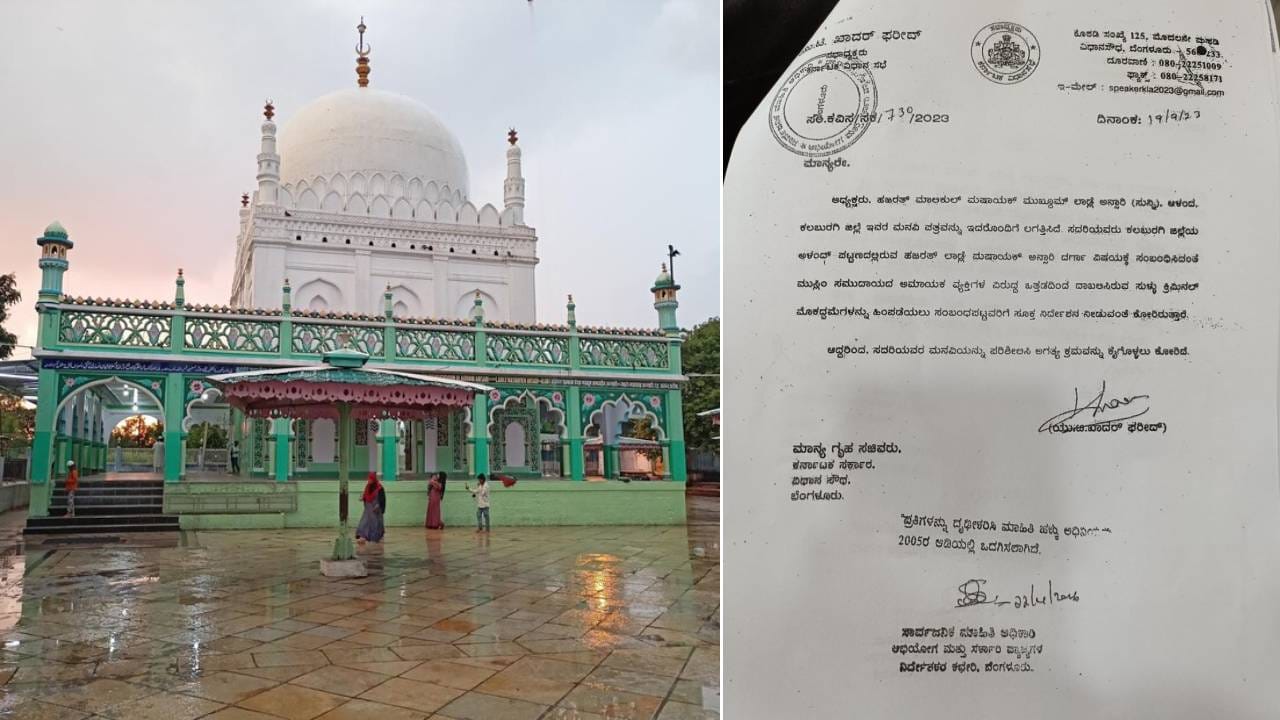 ಯು.ಟಿ. ಖಾದರ್ ಫರೀದ್
ಸಭಾಧ್ಯಕ್ಷರು
ಕರ್ನಾಟಕ ವಿಧಾನ ಸಭೆ
ಕೊಠಡಿ ಸಂಖ್ಯೆ 125, ಮೊದಲನೇ ಮಹಡಿ
ವಿಧಾನಸೌಧ, ಬೆಂಗಳೂರು -
ದೂರವಾಣಿ : 080-22251009
ಫ್ಯಾಕ್ಸ್ : 080-22258171
ಇ-ಮೇಲ್ : speakerkla2023@gmail.com
ಸಂ.ಕವಿಸ/ಸಕ/730/2023
ದಿನಾಂಕ: 19/9/23
ಮಾನ್ಯರೇ,
ಅಧ್ಯಕ್ಷರು, ಹಜರತ್ ಮಾಲಕುಲ್ ಮಷಾಯಕ್ ಮುಖ್ದೂಮ್ ಲಾಡ್ಲೆ ಅನ್ಸಾರಿ (ಸುನ್ನಿ), ಆಳಂದ,
ಕಲಬುರಗಿ ಜಿಲ್ಲೆ ಇವರ ಮನವಿ ಪತ್ರವನ್ನು ಇದರೊಂದಿಗೆ ಲಗತ್ತಿಸಿದೆ. ಸದರಿಯವರು ಕಲಬುರಗಿ ಜಿಲ್ಲೆಯ
ಅಳಂದ್ ಪಟ್ಟಣದಲ್ಲಿರುವ ಹಜರತ್ ಲಾಡ್ಲೆ ಮಷಾಯಕ್ ಅನ್ಸಾರಿ ದರ್ಗಾ ವಿಷಯಕ್ಕೆ ಸಂಬಂಧಿಸಿದಂತೆ
ಮುಸ್ಲಿಂ ಸಮುದಾಯದ ಅಮಾಯಕ ವ್ಯಕ್ತಿಗಳ ವಿರುದ್ಧ ಒತ್ತಡದಿಂದ ದಾಖಲಿಸಿರುವ ಸುಳ್ಳು ಕ್ರಿಮಿನಲ್
ಮೊಕದ್ದಮೆಗಳನ್ನು ಹಿಂಪಡೆಯಲು ಸಂಬಂಧಪಟ್ಟವರಿಗೆ ಸೂಕ್ತ ನಿರ್ದೇಶನ ನೀಡುವಂತೆ ಕೋರಿರುತ್ತಾರೆ.
ಆದ್ದರಿಂದ, ಸದರಿಯವರ ಮನವಿಯನ್ನು ಪರಿಶೀಲಿಸಿ ಅಗತ್ಯ ಕ್ರಮವನ್ನು ಕೈಗೊಳ್ಳಲು ಕೋರಿದೆ.
(ಯು.ಟಿ.ಖಾದರ್ ಫರೀದ್)
ಮಾನ್ಯ ಗೃಹ ಸಚಿವರು,
ಕರ್ನಾಟಕ ಸರ್ಕಾರ,
ವಿಧಾನ ಸೌಧ,
ಬೆಂಗಳೂರು.
"ಪ್ರತಿಗಳನ್ನು ದೃಢೀಕರಿಸಿ ಮಾಹಿತಿ ಹಕ್ಕು
2005ರ ಅಡಿಯಲ್ಲಿ ಒದಗಿಸಲಾಗಿದೆ.
ಸಾರ್ವಜನಿಕ ಮಾಹಿತಿ ಅಧಿಕಾರಿ
ಅಭಿಯೋಗ ಮತ್ತು ಸರ್ಕಾರಿ ವ್ಯಾಜ್ಯಗಳ
ನಿರ್ದೇಶಕರ ಕಛೇರಿ, ಬೆಂಗಳೂರು.